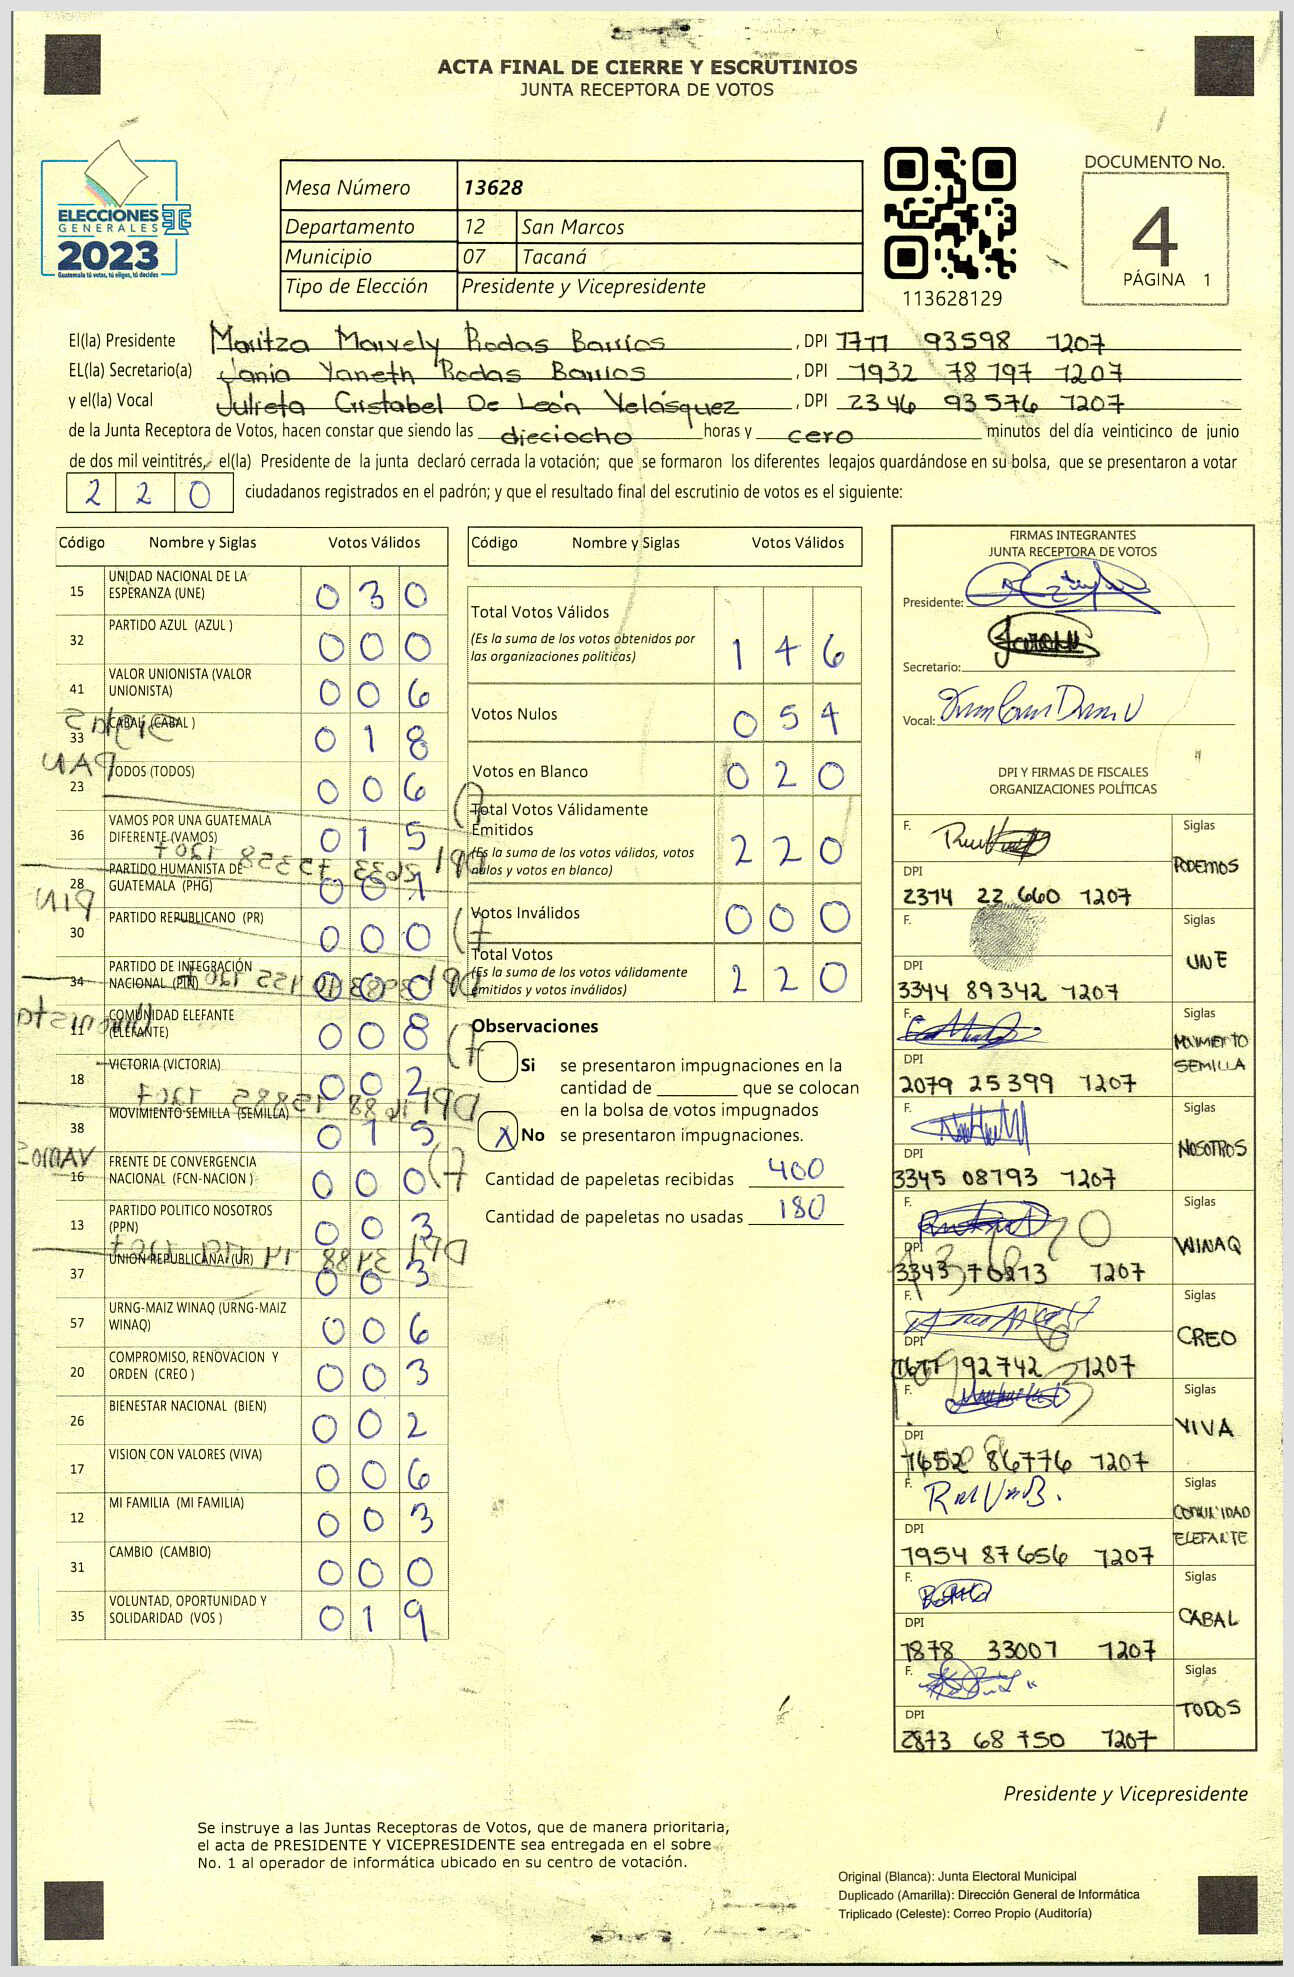 ACTA FINAL DE CIERRE Y ESCRUTINIOS
JUNTA RECEPTORA DE VOTOS
ELECCIONES
GENERALES
2023
Guatemala tú votas, tú eliges, tú decides
Mesa Número 13628
Departamento 12 San Marcos
Municipio 07 Tacaná
Tipo de Elección Presidente y Vicepresidente
113628129
DOCUMENTO No.
4
PÁGINA 1
El(la) Presidente Maritza Marvely Rodas Barrios, DPI 1777 93598 1207
EL(la) Secretario(a) Jania Yaneth Rodas Barrios, DPI 1932 78197 1207
y el(la) Vocal Julieta Cristabel De León Velásquez, DPI 2346 93576 1207
de la Junta Receptora de Votos, hacen constar que siendo las dieciocho horas y cero minutos del día veinticinco de junio
de dos mil veintitrés, el(la) Presidente de la junta declaró cerrada la votación; que se formaron los diferentes legajos guardándose en su bolsa, que se presentaron a votar
220 ciudadanos registrados en el padrón; y que el resultado final del escrutinio de votos es el siguiente:
Código Nombre y Siglas Votos Válidos
15 UNIDAD NACIONAL DE LA ESPERANZA (UNE) 030
32 PARTIDO AZUL (AZUL ) 000
41 VALOR UNIONISTA (VALOR UNIONISTA) 006
33 CABAL (CABAL ) 018
23 TODOS (TODOS) 006
36 VAMOS POR UNA GUATEMALA DIFERENTE (VAMOS) 015
28 PARTIDO HUMANISTA DE GUATEMALA (PHG) 001
30 PARTIDO REPUBLICANO (PR) 000
34 PARTIDO DE INTEGRACIÓN NACIONAL (PIN) 000
11 COMUNIDAD ELEFANTE (ELEFANTE) 008
18 VICTORIA (VICTORIA) 002
38 MOVIMIENTO SEMILLA (SEMILLA) 015
16 FRENTE DE CONVERGENCIA NACIONAL (FCN-NACION ) 000
13 PARTIDO POLITICO NOSOTROS (PPN) 003
37 UNION REPUBLICANA (UR) 003
57 URNG-MAIZ WINAQ (URNG-MAIZ WINAQ) 006
20 COMPROMISO, RENOVACION Y ORDEN (CREO ) 003
26 BIENESTAR NACIONAL (BIEN) 002
17 VISION CON VALORES (VIVA) 006
12 MI FAMILIA (MI FAMILIA) 003
31 CAMBIO (CAMBIO) 000
35 VOLUNTAD, OPORTUNIDAD Y SOLIDARIDAD (VOS ) 019
Código Nombre y Siglas Votos Válidos
Total Votos Válidos 146
(Es la suma de los votos obtenidos por
las organizaciones políticas)
Votos Nulos 054
Votos en Blanco 020
Total Votos Válidamente
Emitidos 220
(Es la suma de los votos válidos, votos
nulos y votos en blanco)
Votos Inválidos 000
Total Votos 220
(Es la suma de los votos válidamente
emitidos y votos inválidos)
Observaciones
Si se presentaron impugnaciones en la
cantidad de ________ que se colocan
en la bolsa de votos impugnados
X No se presentaron impugnaciones.
Cantidad de papeletas recibidas 400
Cantidad de papeletas no usadas 180
FIRMAS INTEGRANTES
JUNTA RECEPTORA DE VOTOS
Presidente:
Secretario:
Vocal:
DPI Y FIRMAS DE FISCALES
ORGANIZACIONES POLÍTICAS
F. Siglas PODEMOS
DPI 2314 22 660 1207
F. Siglas UNE
DPI 3344 89342 1207
F. Siglas MOVIMIENTO SEMILLA
DPI 2079 25399 1207
F. Siglas NOSOTROS
DPI 3345 08793 1207
F. Siglas WINAQ
DPI 3343 70213 1207
F. Siglas CREO
DPI 1677 92742 1207
F. Siglas VIVA
DPI 1652 86776 1207
F. Siglas COMUNIDAD ELEFANTE
DPI 1954 87656 1207
F. Siglas CABAL
DPI 1878 33007 1207
F. Siglas TODOS
DPI 2873 68 750 1207
Presidente y Vicepresidente
Se instruye a las Juntas Receptoras de Votos, que de manera prioritaria,
el acta de PRESIDENTE Y VICEPRESIDENTE sea entregada en el sobre
No. 1 al operador de informática ubicado en su centro de votación.
Original (Blanca): Junta Electoral Municipal
Duplicado (Amarilla): Dirección General de Informática
Triplicado (Celeste): Correo Propio (Auditoría)